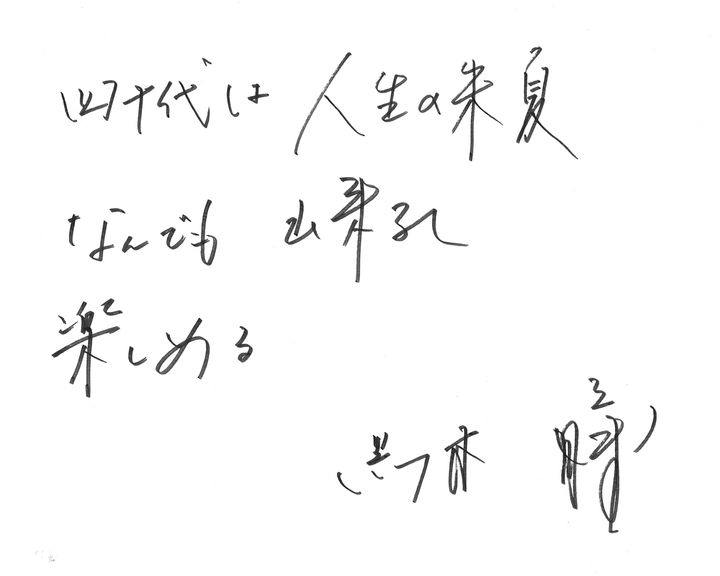 四十代は人生の朱夏
なんでも出来るし
楽しめる